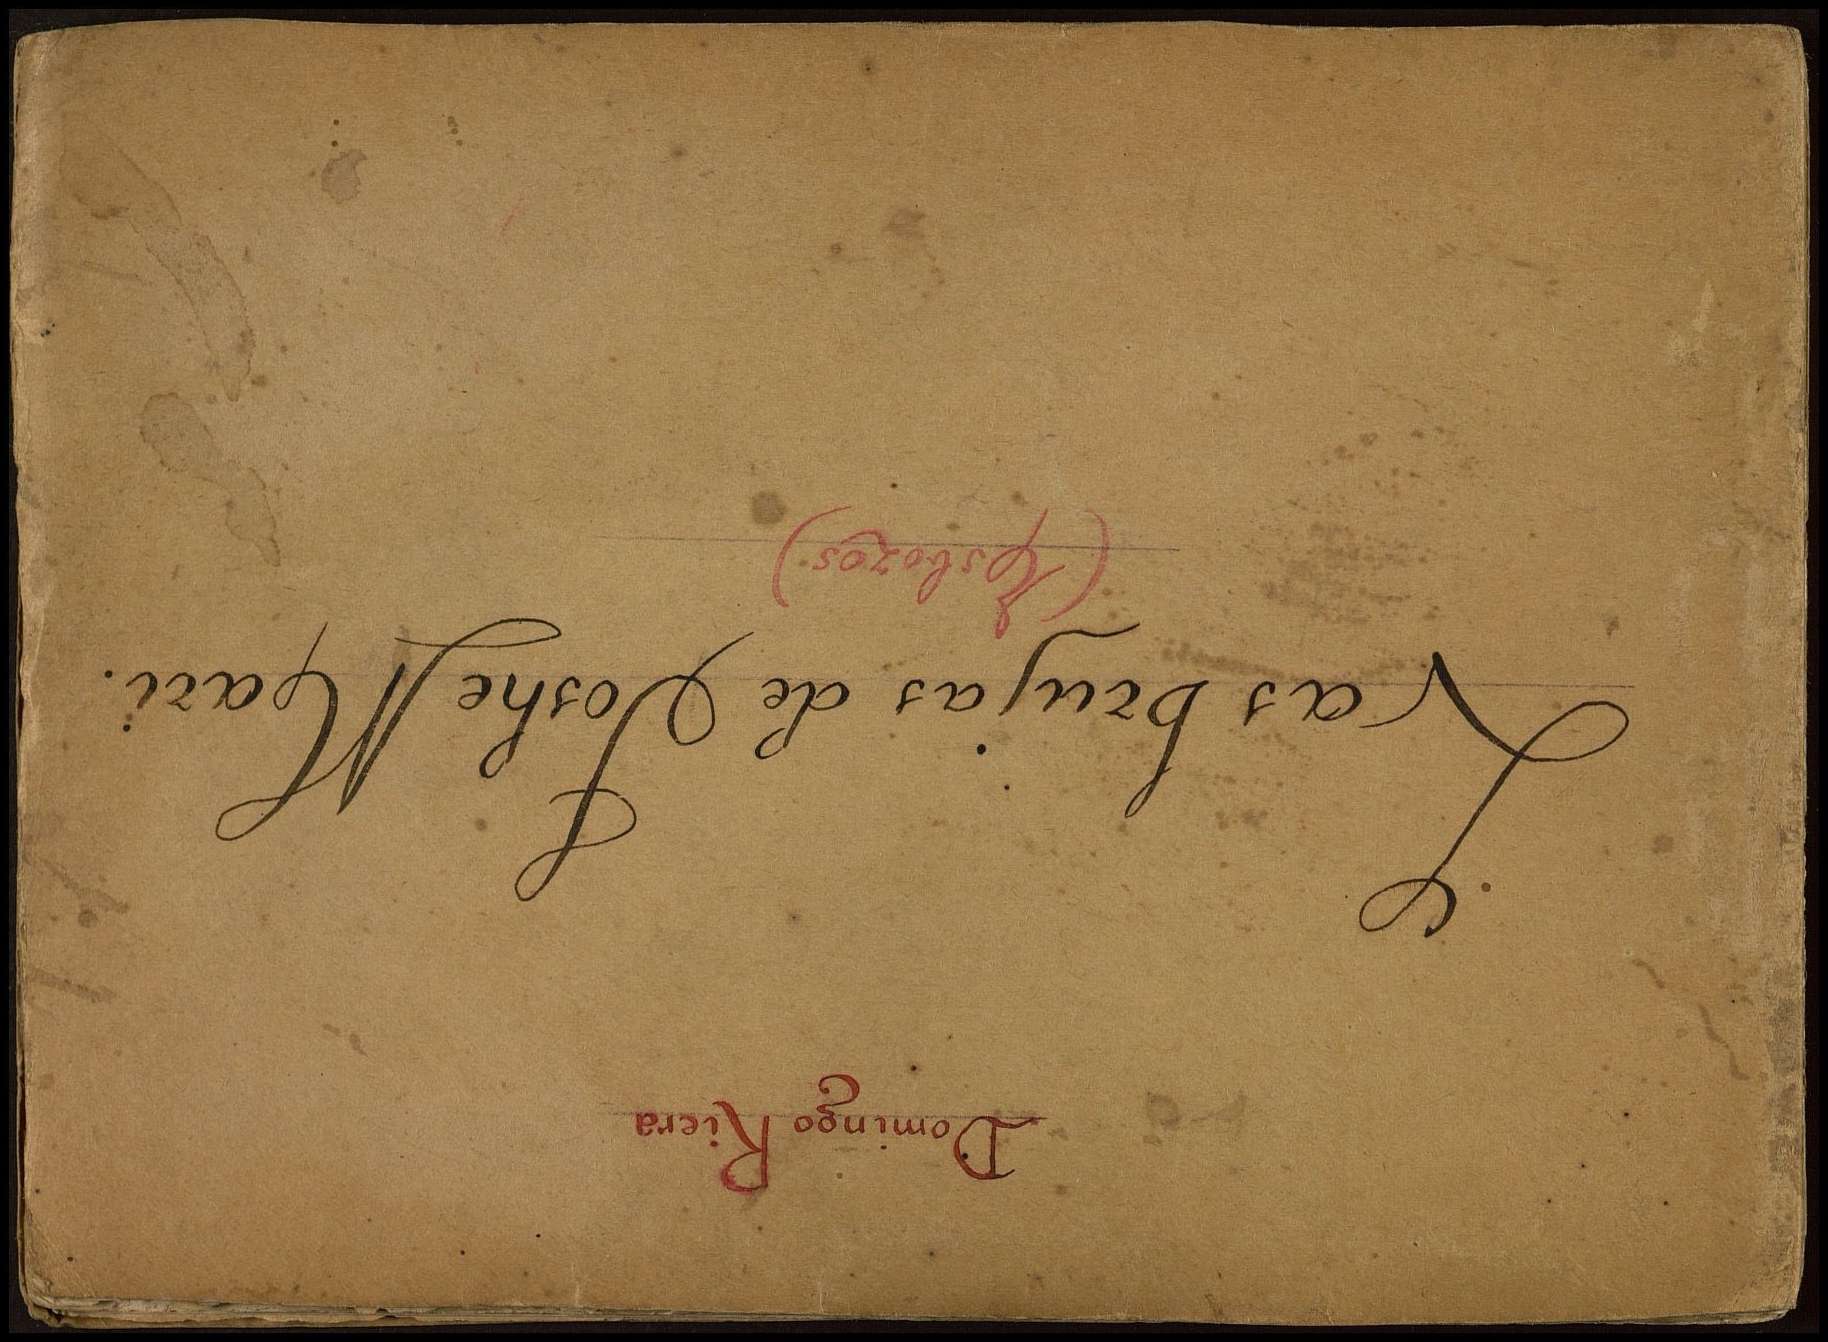 Domingo Riera
Las brujas de Joshe Mari.
(Esbozos)